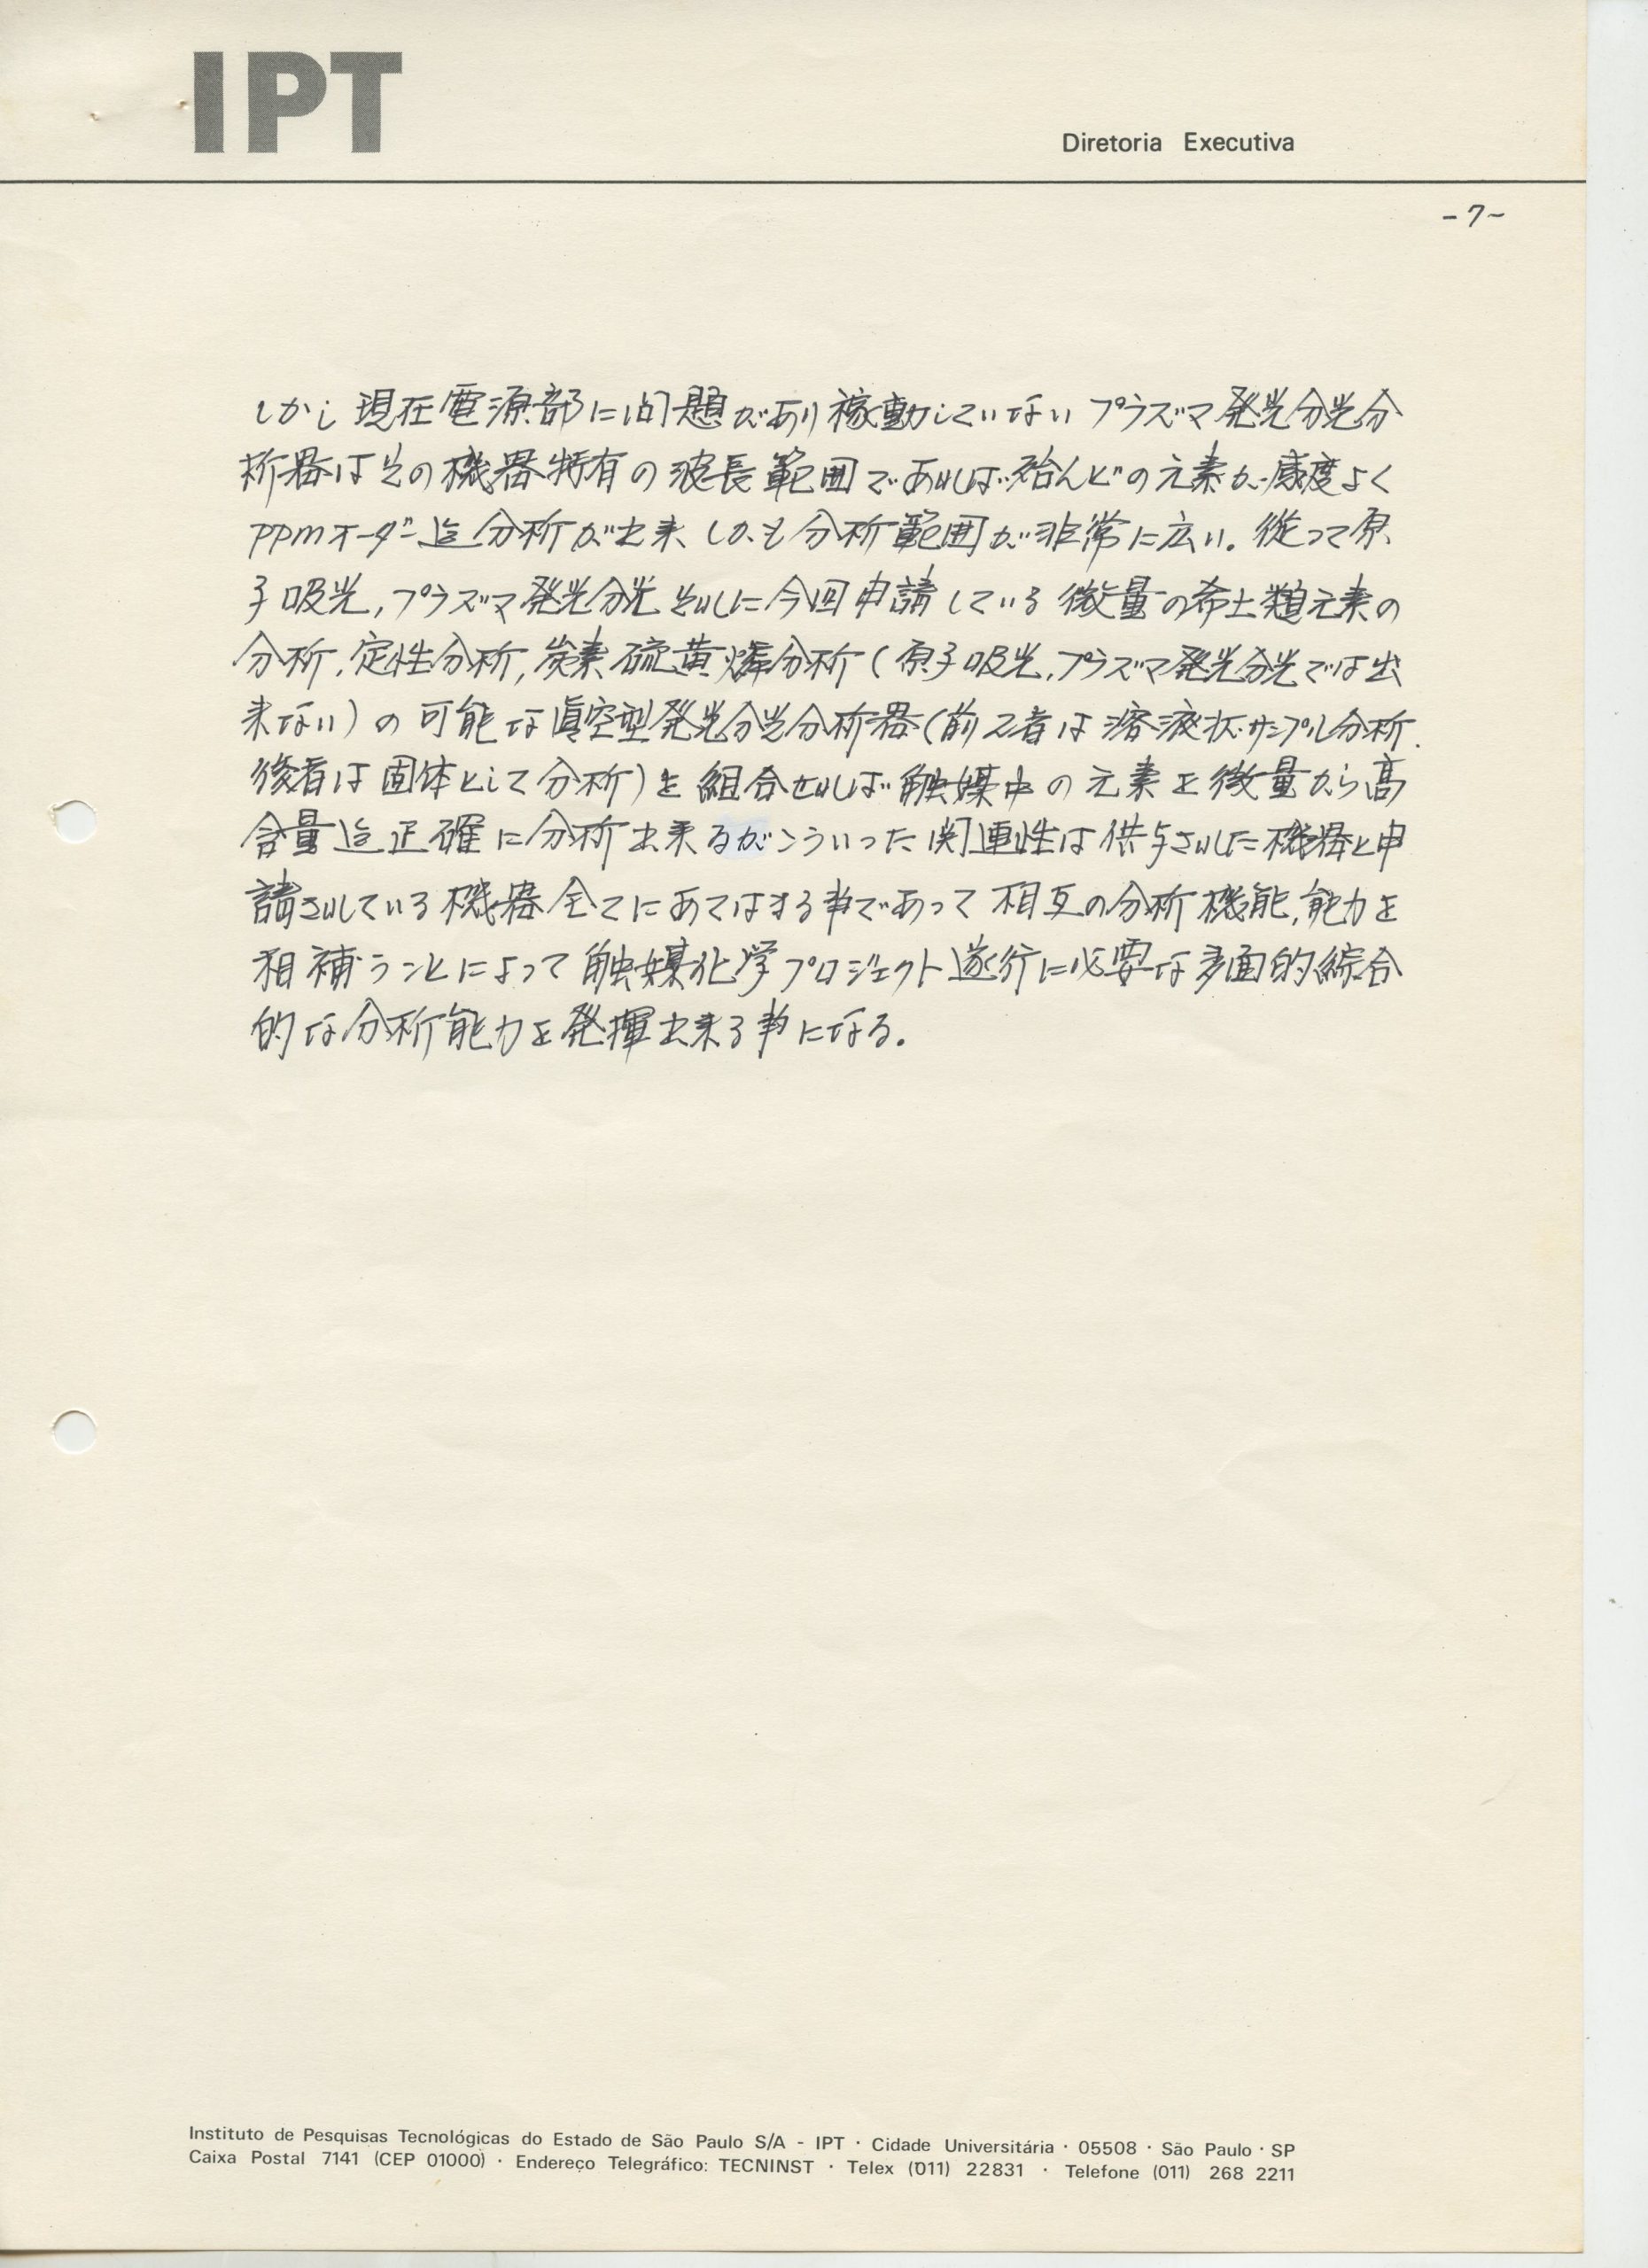 IPT
Diretoria Executiva
-7-
しかし現在電源部に問題があり稼動していない プラズマ発光分光分
析器はその機器特有の波長範囲であれば殆んどの元素が感度よく
ppmオーダー迄分析が出来、しかも分析範囲が非常に広い。従って原
子吸光,プラズマ発光分光それに今回申請している微量の希土類元素の
分析,定性分析,炭素硫黄燐分析(原子吸光,プラズマ発光分光では出
来ない)の可能な眞空型発光分光分析器(前2者は溶液状サンプル分析.
後者は固体として分析)を組合せれば触媒中の元素を微量から高
含量迄正確に分析出来るがこういった関連性は供与された機器と申
請されている機器全てにあてはまる事であって相互の分析機能,能力を
相補うことによって触媒化学プロジェクト遂行に必要な多面的綜合
的な分析能力を発揮出来る事になる。
Instituto de Pesquisas Tecnológicas do Estado de São Paulo S/A - IPT · Cidade Universitária · 05508 · São Paulo · SP
Caixa Postal 7141 (CEP 01000) · Endereço Telegráfico: TECNINST · Telex (011) 22831 · Telefone (011) 268 2211